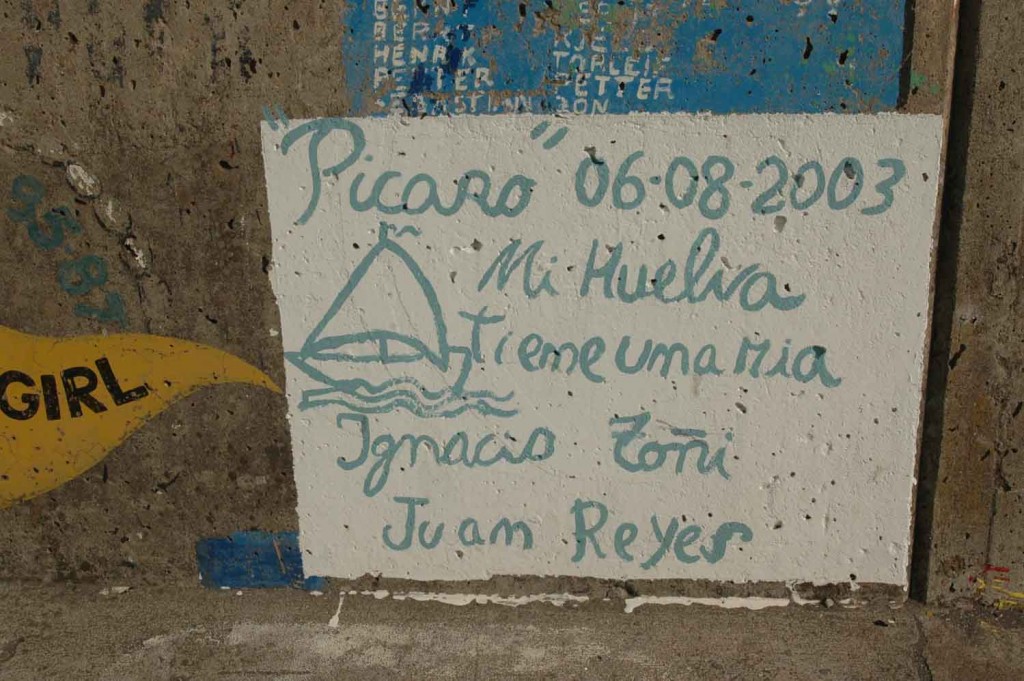 HENRIK TORLEIF
PETTER PETTER
SEBASTIAN JON
"Picaro" 06-08-2003
Mi Huelva
Tiene una Ria
Ignacio Toñi
Juan Reyes
GIRL